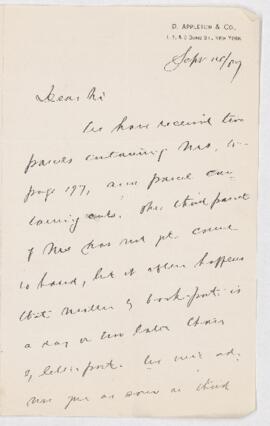 D. APPLETON & CO.,
1, 3, & 5 BOND ST., NEW YORK.
Sept
Dear Sir
We have received two
parcels containing Mss, to
page 197, and parcel con-
taining cuts. The third parcel
of Mss has not yet come
to hand, but it often happens
that matter by book-post is
a day or two later than
by letter post. We will ad-
vise you as soon as third